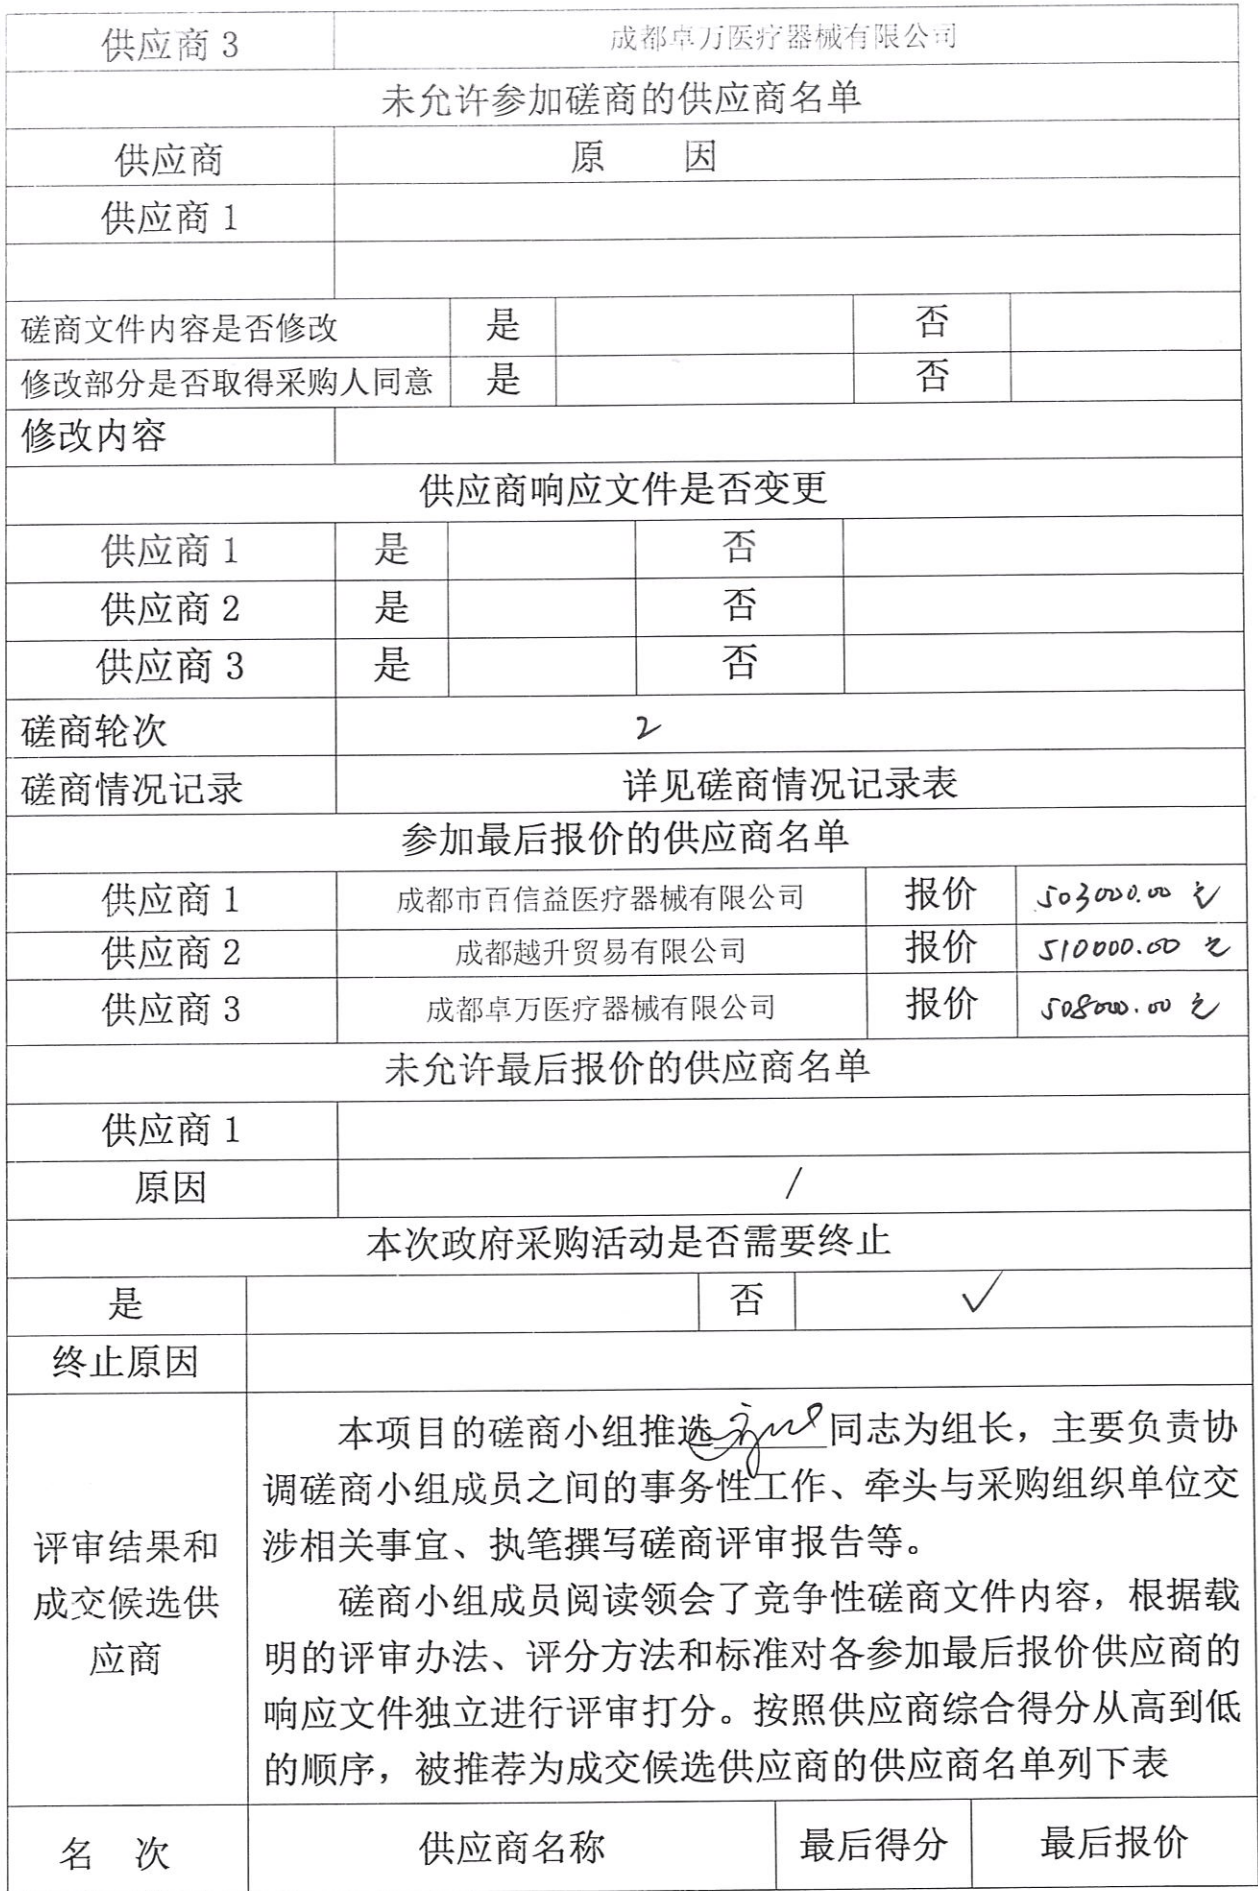 供应商 3 成都卓万医疗器械有限公司
未允许参加磋商的供应商名单
供应商 原 因
供应商 1
磋商文件内容是否修改 是 否
修改部分是否取得采购人同意 是 否
修改内容
供应商响应文件是否变更
供应商 1 是 否
供应商 2 是 否
供应商 3 是 否
磋商轮次 2
磋商情况记录 详见磋商情况记录表
参加最后报价的供应商名单
供应商 1 成都市百信益医疗器械有限公司 报价 503000.00 元
供应商 2 成都越升贸易有限公司 报价 510000.00 元
供应商 3 成都卓万医疗器械有限公司 报价 508000.00 元
未允许最后报价的供应商名单
供应商 1
原因 /
本次政府采购活动是否需要终止
是 否 √
终止原因
评审结果和
成交候选供
应商
本项目的磋商小组推选 同志为组长，主要负责协
调磋商小组成员之间的事务性工作、牵头与采购组织单位交
涉相关事宜、执笔撰写磋商评审报告等。
磋商小组成员阅读领会了竞争性磋商文件内容，根据载
明的评审办法、评分方法和标准对各参加最后报价供应商的
响应文件独立进行评审打分。按照供应商综合得分从高到低
的顺序，被推荐为成交候选供应商的供应商名单列下表
名 次 供应商名称 最后得分 最后报价